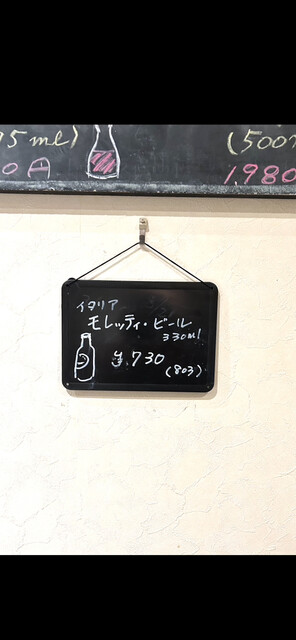 5ml)
(500
0円
1,980
イタリア
モレッティ・ビール
330ml
¥730
(803)